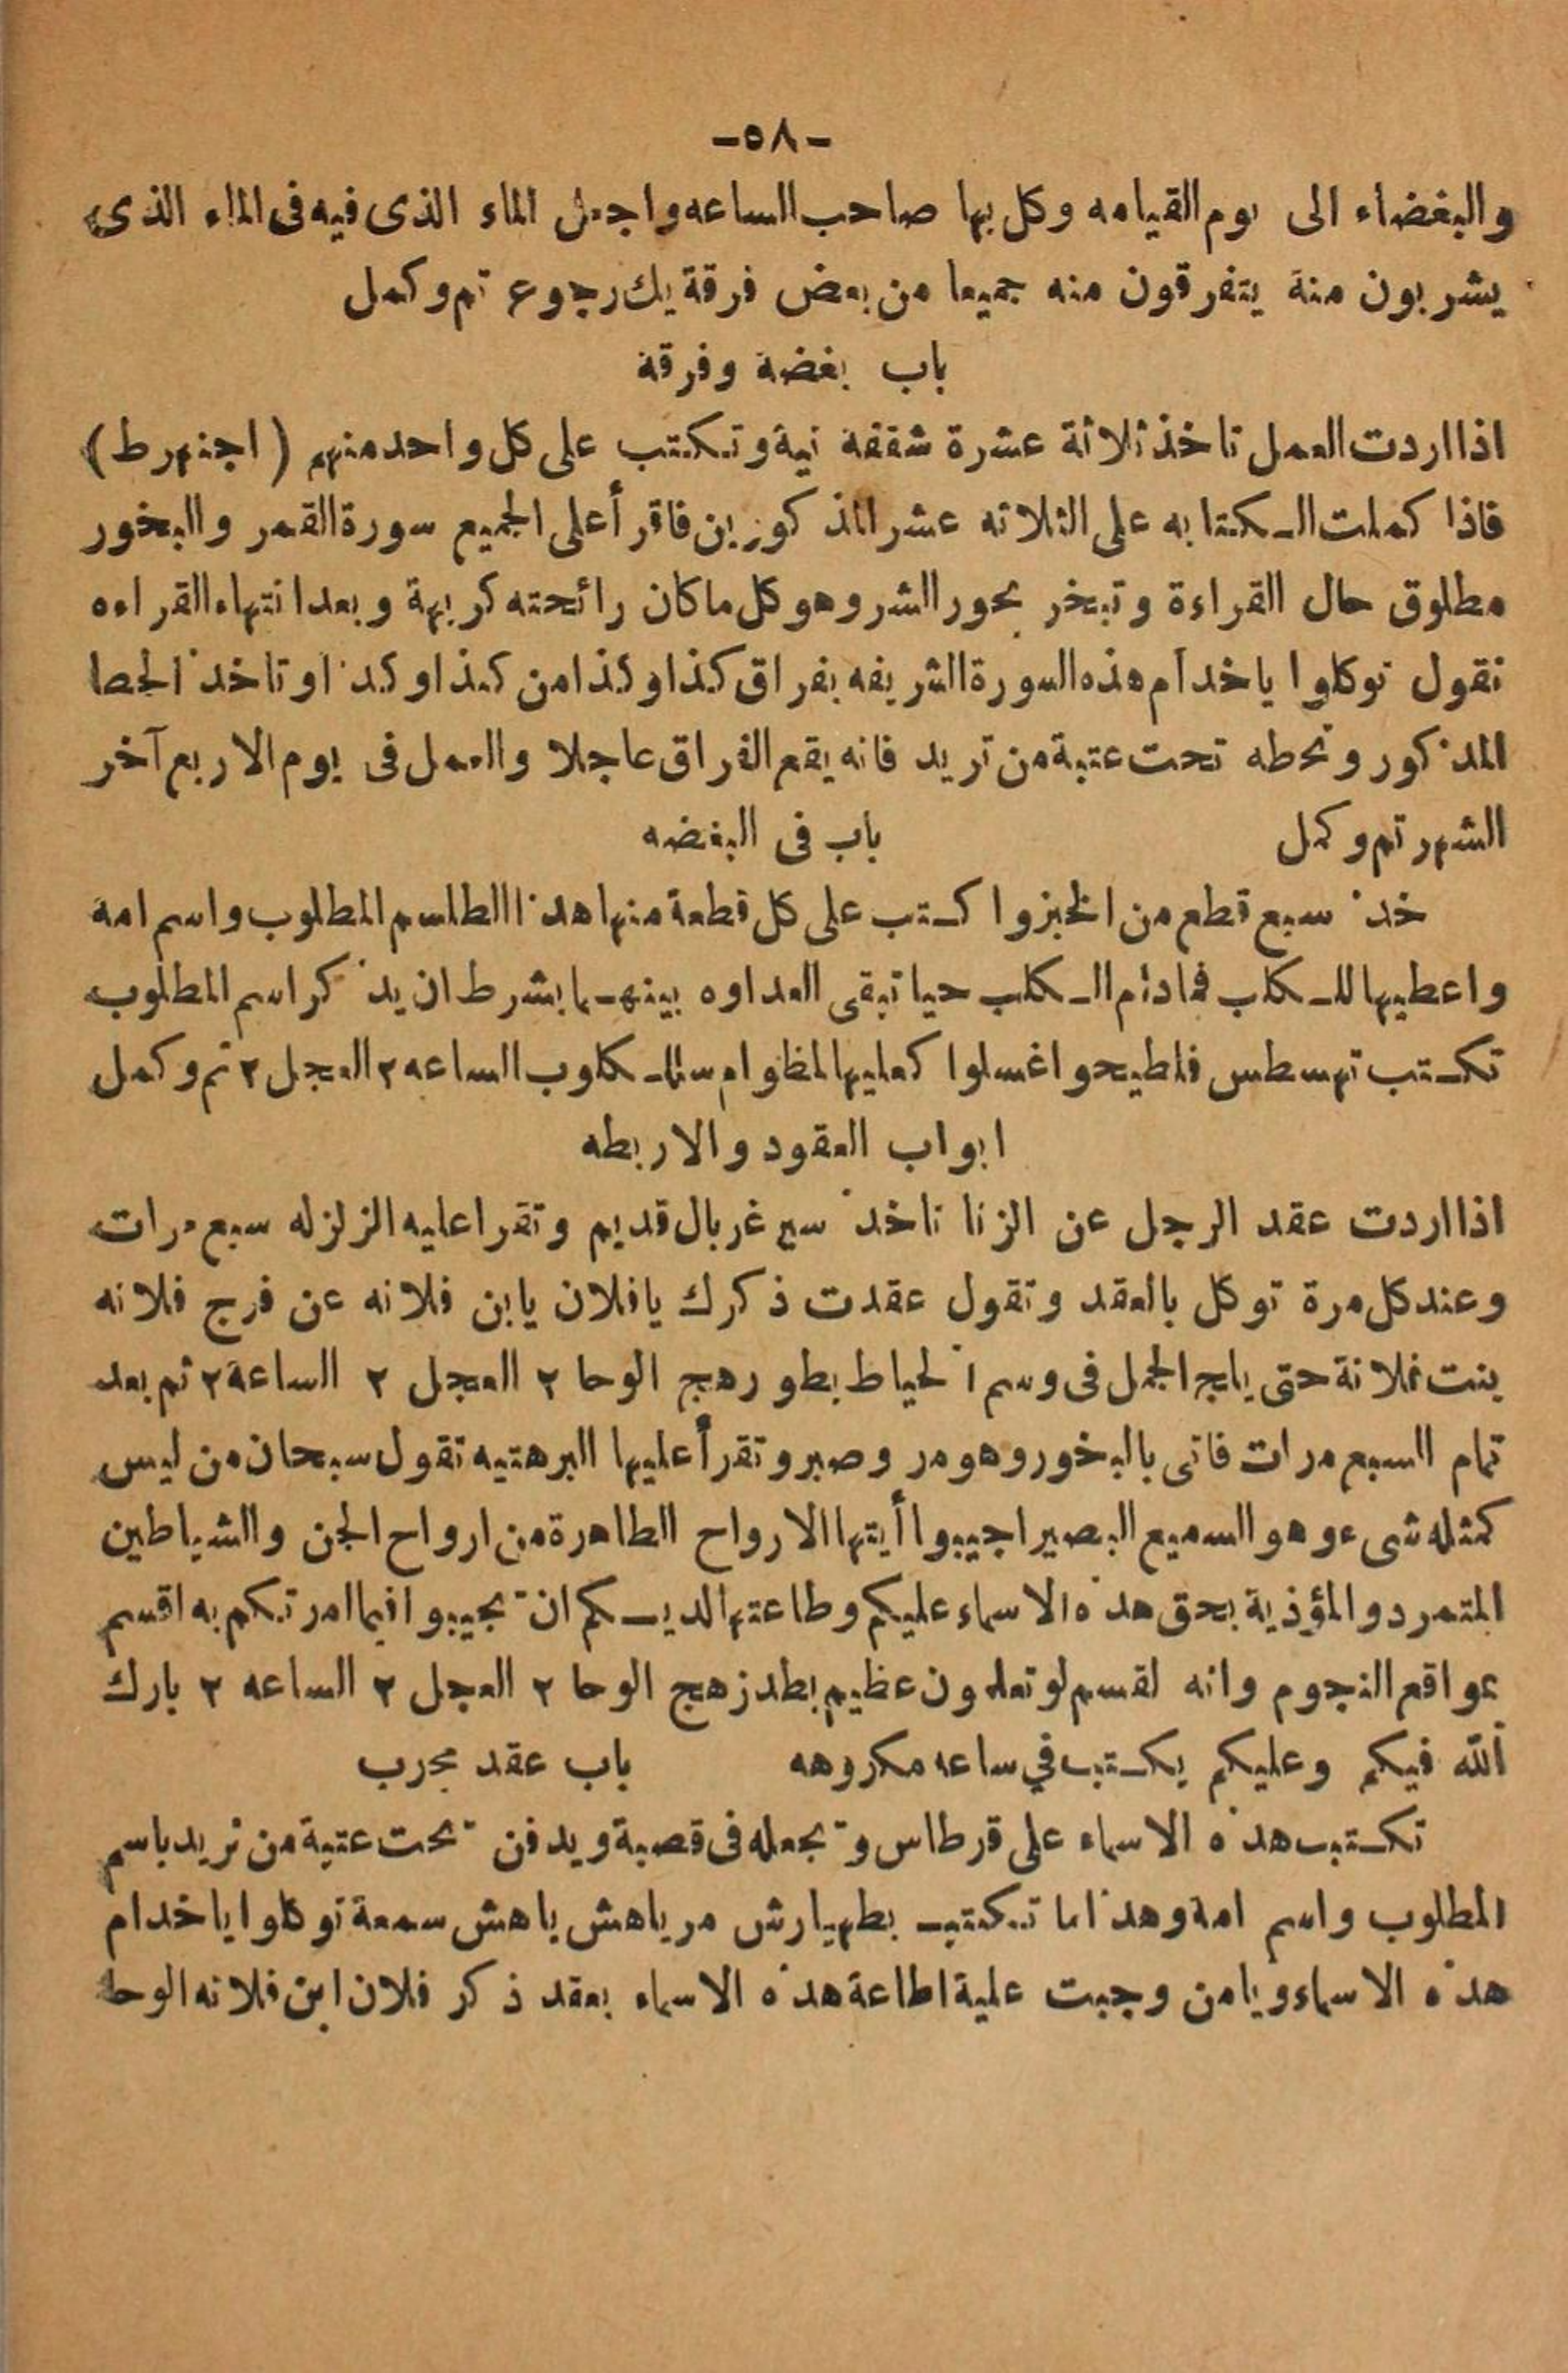 -٥٨-
والبغضاء الى يوم القيامه وكل بها صاحب الساعه واجعل الماء الذى فيه فى الماء الذى
يشربون منة يتفرقون منه جميعا من بعض فرقة بلا رجوع تم وكمل
باب بغضة وفرقة
اذا اردت العمل تاخذ ثلاثة عشرة شقفة نية وتكتب على كل واحد منهم (اجنهرط)
فاذا كملت الكتابه على الثلاثه عشر المذكورين فاقرأ على الجميع سورة القمر والبخور
مطلوق حال القراءة وتبخر بخور الشر وهو كل ما كان رائحته كريهة وبعد انتهاء القراءه
تقول توكلوا ياخدام هذه السورة الشريفه بفراق كذا وكذا من كذا وكذا وتاخذ الحصا
المذكور وتحطه تحت عتبة من تريد فانه يقع الفراق عاجلا والعمل فى يوم الاربع آخر
الشهر تم وكمل باب فى البغضه
خذ سبع قطع من الخبز واكتب على كل قطعة منها هذا الطلسم المطلوب واسم امه
واعطيها للكلب فمادام الكلب حيا تبقى العداوه بينهما بشرط ان يذكر اسم المطلوب
تكتب تهسطس فلطيحو اغسلوا كعليها الساعه ٢ العجل ٢ تم وكمل
ابواب العقود والاربطه
اذا اردت عقد الرجل عن الزنا تاخذ سير غربال قديم وتقرا عليه الزلزله سبع مرات
وعند كل مرة توكل بالعقد وتقول عقدت ذكرك يافلان يابن فلانه عن فرج فلانه
بنت فلانة حتى يلج الجمل فى وسم الحياط بطورهج الوحا ٢ العجل ٢ الساعة ٢ ثم بعد
تمام السبع مرات فاتى بالبخور وهو مر وصبر وتقرأ عليها البرهتيه تقول سبحان من ليس
كمثله شىء وهو السميع البصير اجيبوا أيتها الارواح الطاهرة من ارواح الجن والشياطين
المتمرد والمؤذية بحق هذه الاسماء عليكم وطاعتها لديكم ان تجيبوا فيما امرتكم به اقسم
بمواقع النجوم وانه لقسم لو تعلمون عظيم بطدزهج الوحا ٢ العجل ٢ الساعه ٢ بارك
الله فيكم وعليكم يكتب في ساعه مكروهه باب عقد مجرب
تكتب هذه الاسماء على قرطاس وتجعله فى قصبة ويدفن تحت عتبة من تريد باسم
المطلوب واسم امة وهذا ما تكتب بطهيارش مرياهش ياهش سمعة توكلوا ياخدام
هذه الاسماء ويامن وجبت علية اطاعة هذه الاسماء بعقد ذكر فلان ابن فلانه الوحا